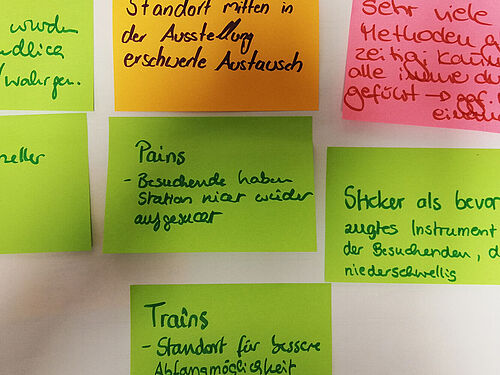 wurden
endlich
wahrgen.
Standort mitten in
der Ausstellung
erschwerte Austausch
sehr viele
Methoden
zeitig
alle
geführt → ggf.
neller
Pains
- Besuchende haben
Station nicht wieder
aufgesucht
Sticker als bevor
zugtes Instrument
der Besuchenden, d
niederschwellig
Trains
- Standort für bessere
Abfangmöglichkeit